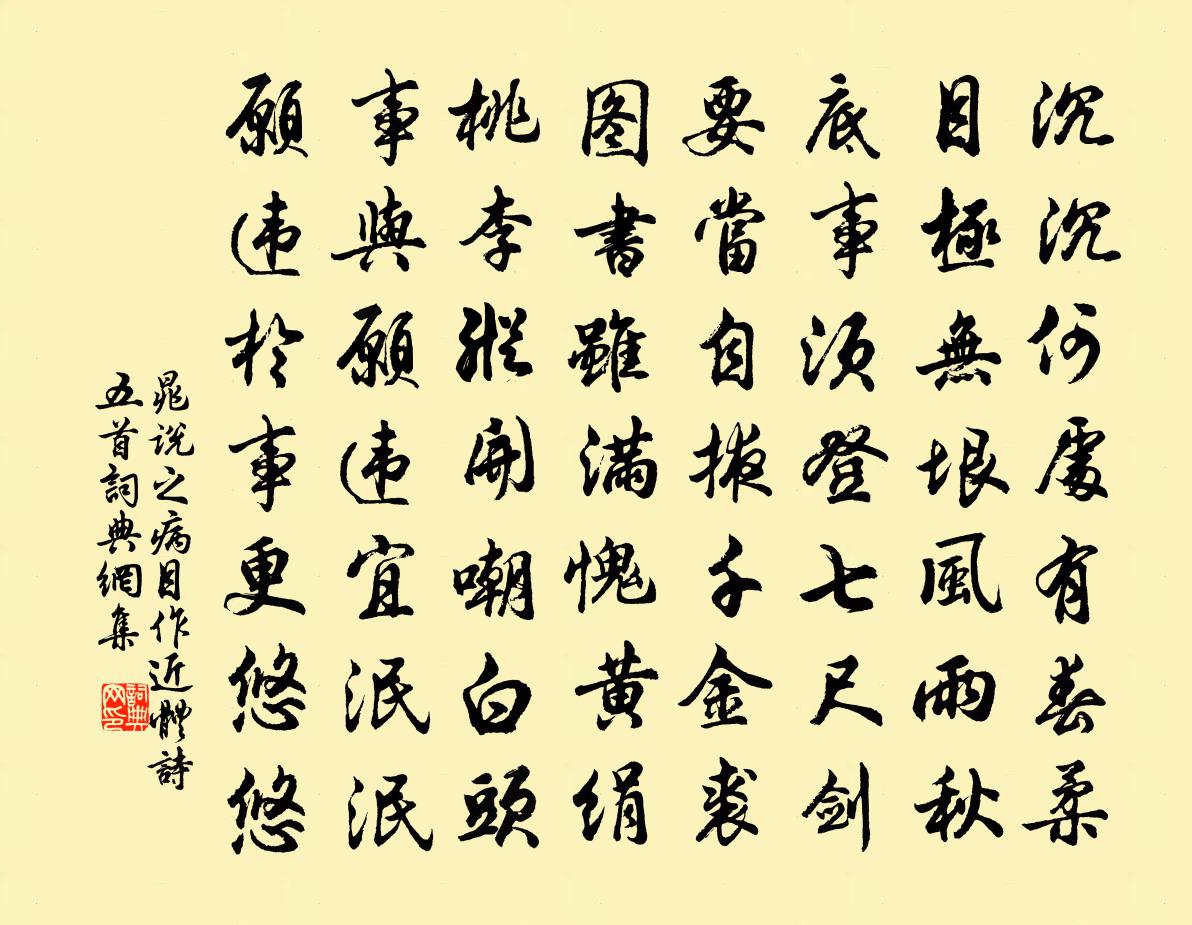 沉沉何處有春柔
目極無垠風雨秋
底事须登七尺剑
要當自掖千金裘
图書雖滿愧黄绢
桃李縱開嘲白頭
事與願违宜泯泯
願违於事更悠悠
晁说之病目作近體詩
五首詞典網集
詞典
网印